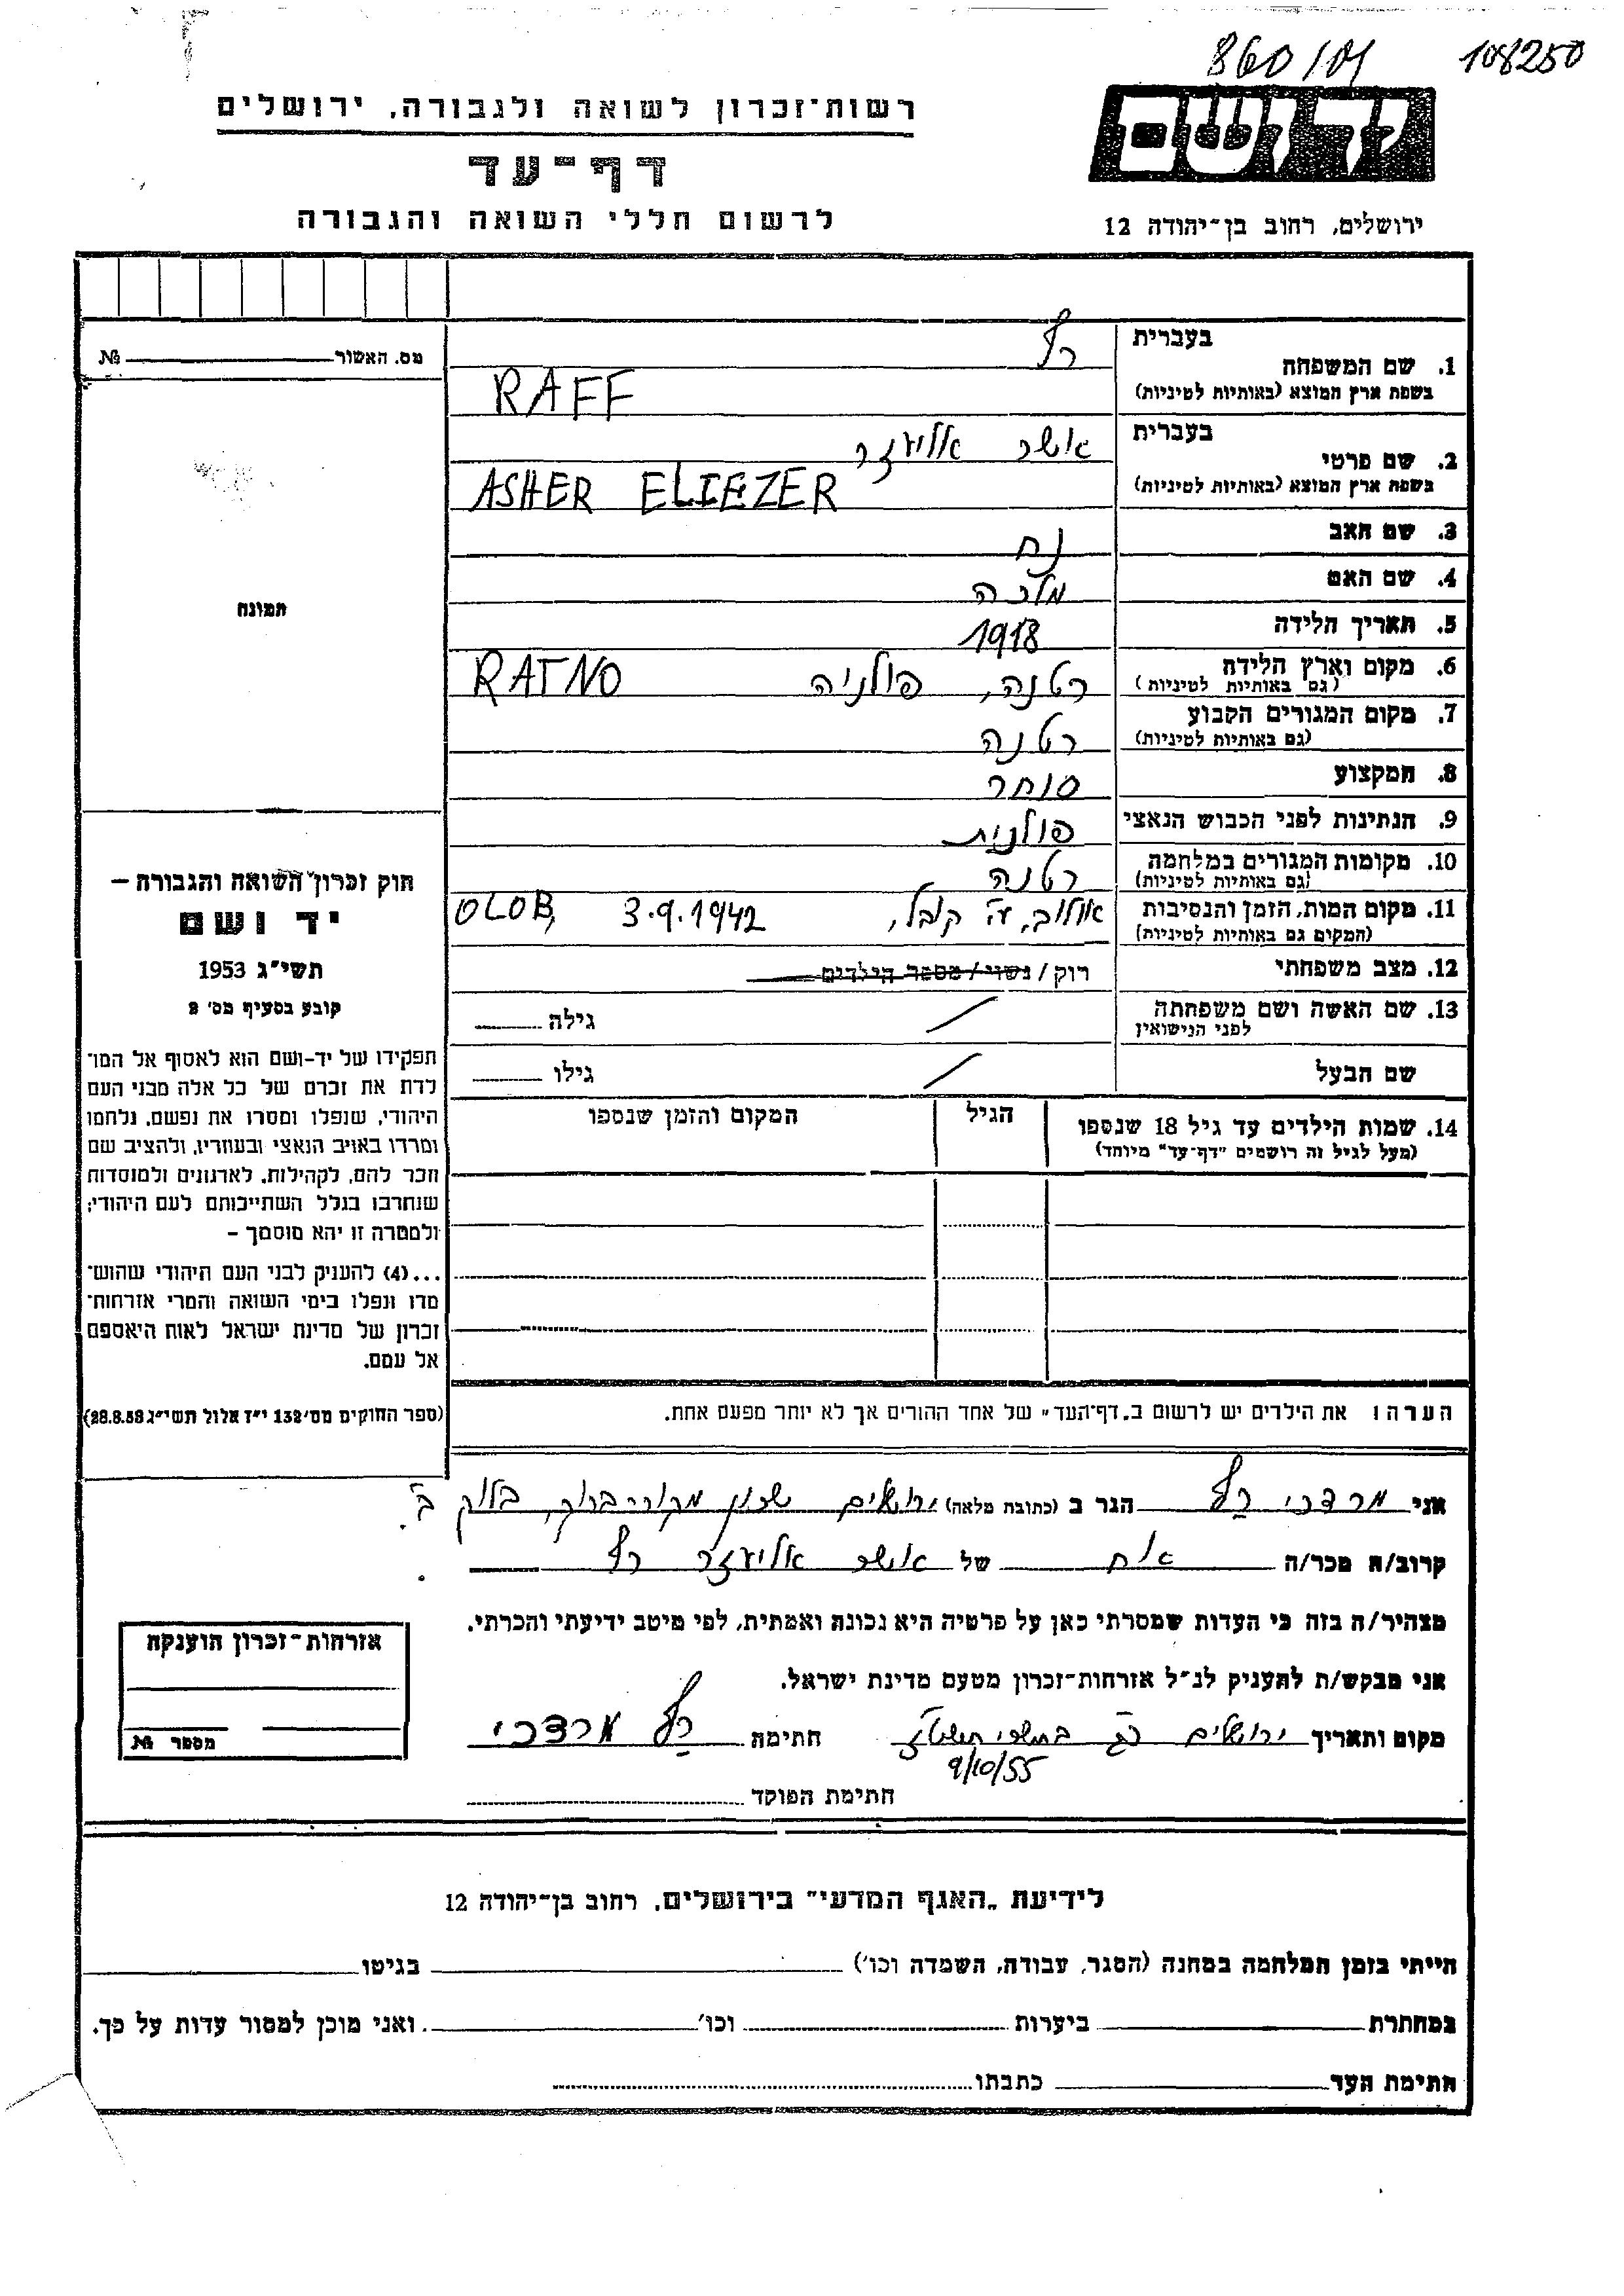 860/101 108250
יד ושם
רשות־זכרון לשואה ולגבורה, ירושלים
דף־עד
לרשום חללי השואה והגבורה
ירושלים, רחוב בן־יהודה 12
מס. האשור № 
בעברית רף
1. שם המשפחה
בשפת ארץ המוצא (באותיות לטיניות) RAFF
בעברית אשר אליעזר
2. שם פרטי
בשפת ארץ המוצא (באותיות לטיניות) ASHER ELIEZER
3. שם האב נח
4. שם האם מלכה
5. תאריך הלידה 1918
6. מקום וארץ הלידה רטנה, פולניה RATNO
(גם באותיות לטיניות)
7. מקום המגורים הקבוע רטנה
(גם באותיות לטיניות)
8. המקצוע סוחר
9. הנתינות לפני הכבוש הנאצי פולנית
10. מקומות המגורים במלחמה רטנה
(גם באותיות לטיניות)
11. מקום המות, הזמן והנסיבות קובל, 3.9.1942 OLOB,
(המקום גם באותיות לטיניות)
12. מצב משפחתי רוק / נשוי / מספר הילדים
13. שם האשה ושם משפחתה גילה
לפני הנישואין
שם הבעל גילו
14. שמות הילדים עד גיל 18 שנספו הגיל המקום והזמן שנספו
(מעל לגיל זה רושמים "דף־עד" מיוחד)
תמונה
חוק זכרון השואה והגבורה –
יד ושם
תשי"ג 1953
קובע בסעיף מס' 2
תפקידו של יד-ושם הוא לאסוף אל המו־
לדת את זכרם של כל אלה מבני העם
היהודי, שנפלו ומסרו את נפשם, נלחמו
ומרדו באויב הנאצי ובעוזריו, ולהציב שם
וזכר להם, לקהילות, לארגונים ולמוסדות
שנחרבו בגלל השתייכותם לעם היהודי;
ולמטרה זו יהא מוסמך –
...(4) להעניק לבני העם היהודי שהוש־
מדו ונפלו בימי השואה והמרי אזרחות־
זכרון של מדינת ישראל לאות היאספם
אל עמם.
(ספר החוקים מס' 132 י"ז אלול תשי"ג 28.8.53)
הערה: את הילדים יש לרשום ב„דף־העד" של אחד ההורים אך לא יותר מפעם אחת.
אני מרדכי רף הגר ב (כתובת מלאה) ירושלים שכון מקור־ברוך, בלוק ב'
קרוב/ה מכר/ה אח של אשר אליעזר רף
מצהיר/ה בזה כי העדות שמסרתי כאן על פרטיה היא נכונה ואמתית, לפי מיטב ידיעתי והכרתי.
אני מבקש/ת להעניק לנ"ל אזרחות־זכרון מטעם מדינת ישראל.
מקום ותאריך ירושלים כג בתשרי תשט"ז חתימה רף מרדכי
9/10/55
חתימת הפוקד
אזרחות־זכרון הוענקה
מספר №
לידיעת „האגף המדעי" בירושלים, רחוב בן־יהודה 12
הייתי בזמן המלחמה במחנה (הסגר, עבודה, השמדה וכו') בגיטו
במחתרת ביערות וכו' ואני מוכן למסור עדות על כך.
חתימת העד כתבתו